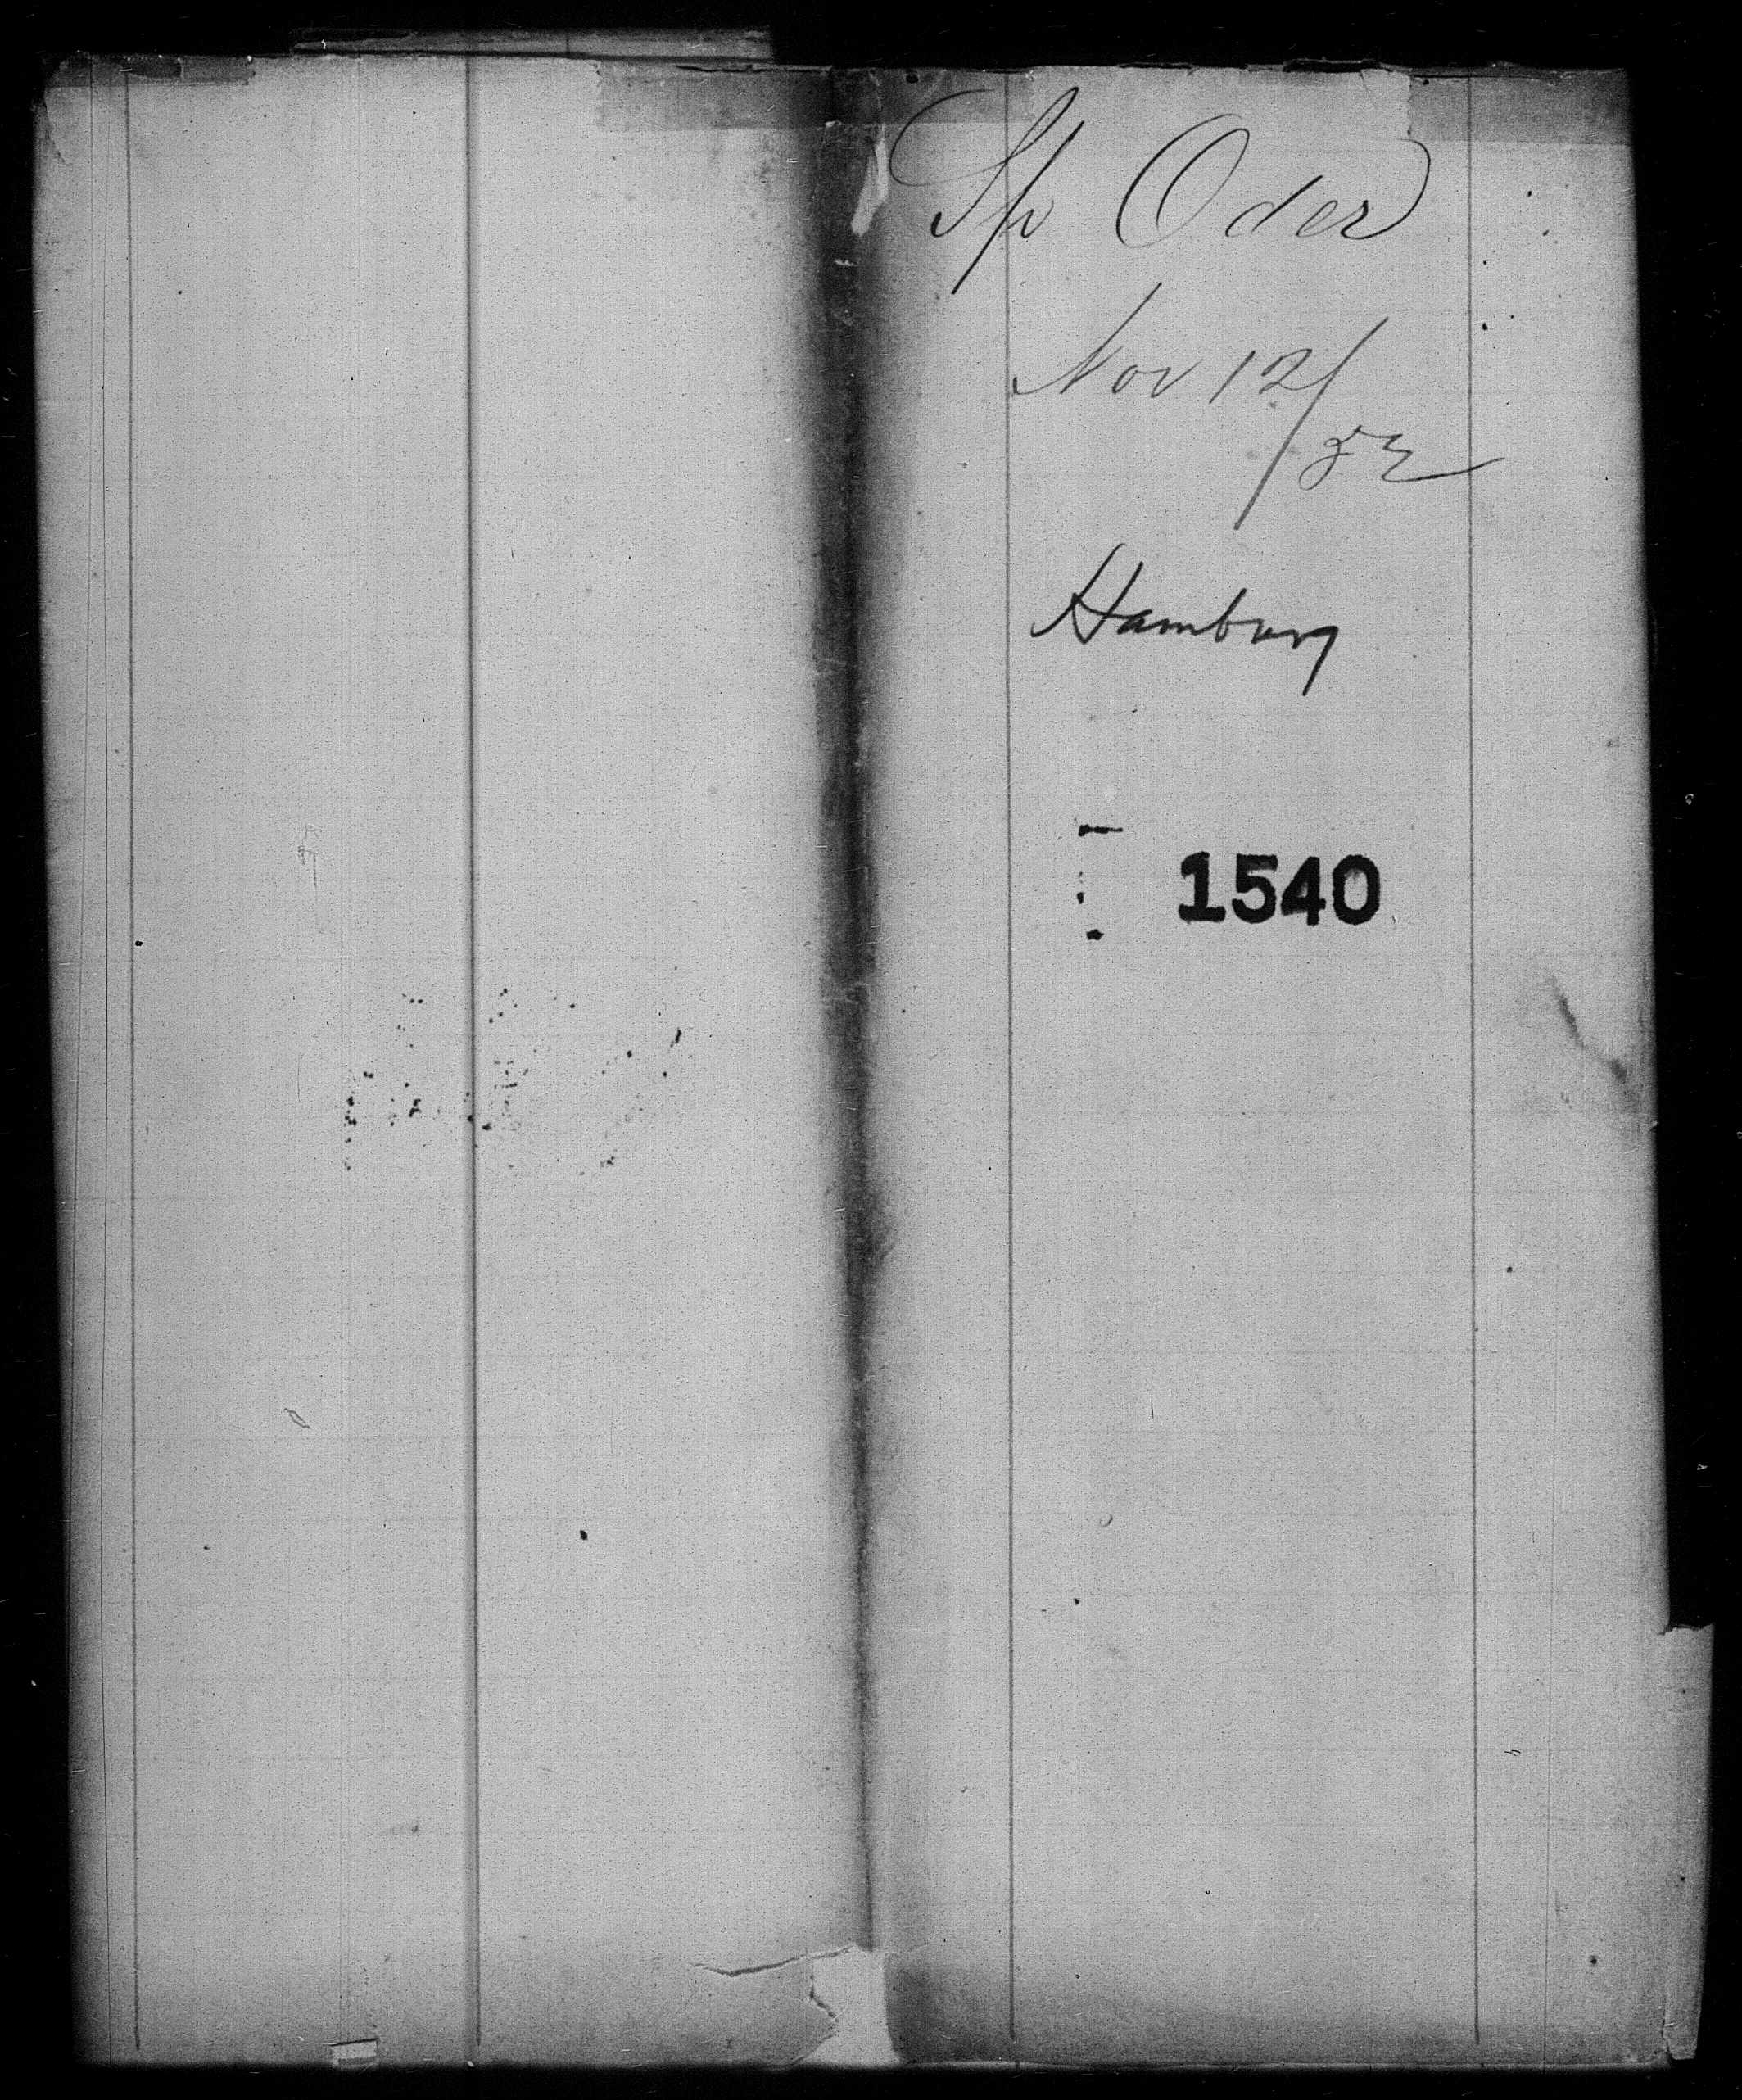 Sp Oder
Nov 12/82
Hamburg
1540